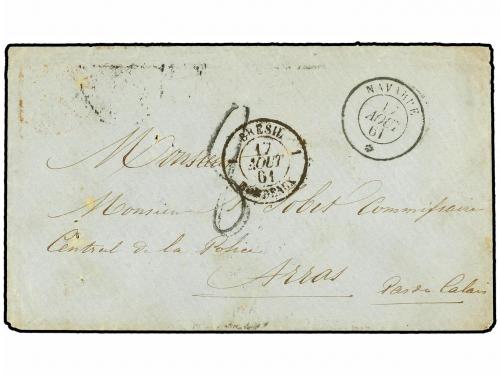 NAVARRE
17
AOUT
61
BRÉSIL
1 1
17
AOUT
61
BORDEAUX
8
Monsieur
Monsieur Jobit Commissaire
Central de la Police
Arras
Pas de Calais